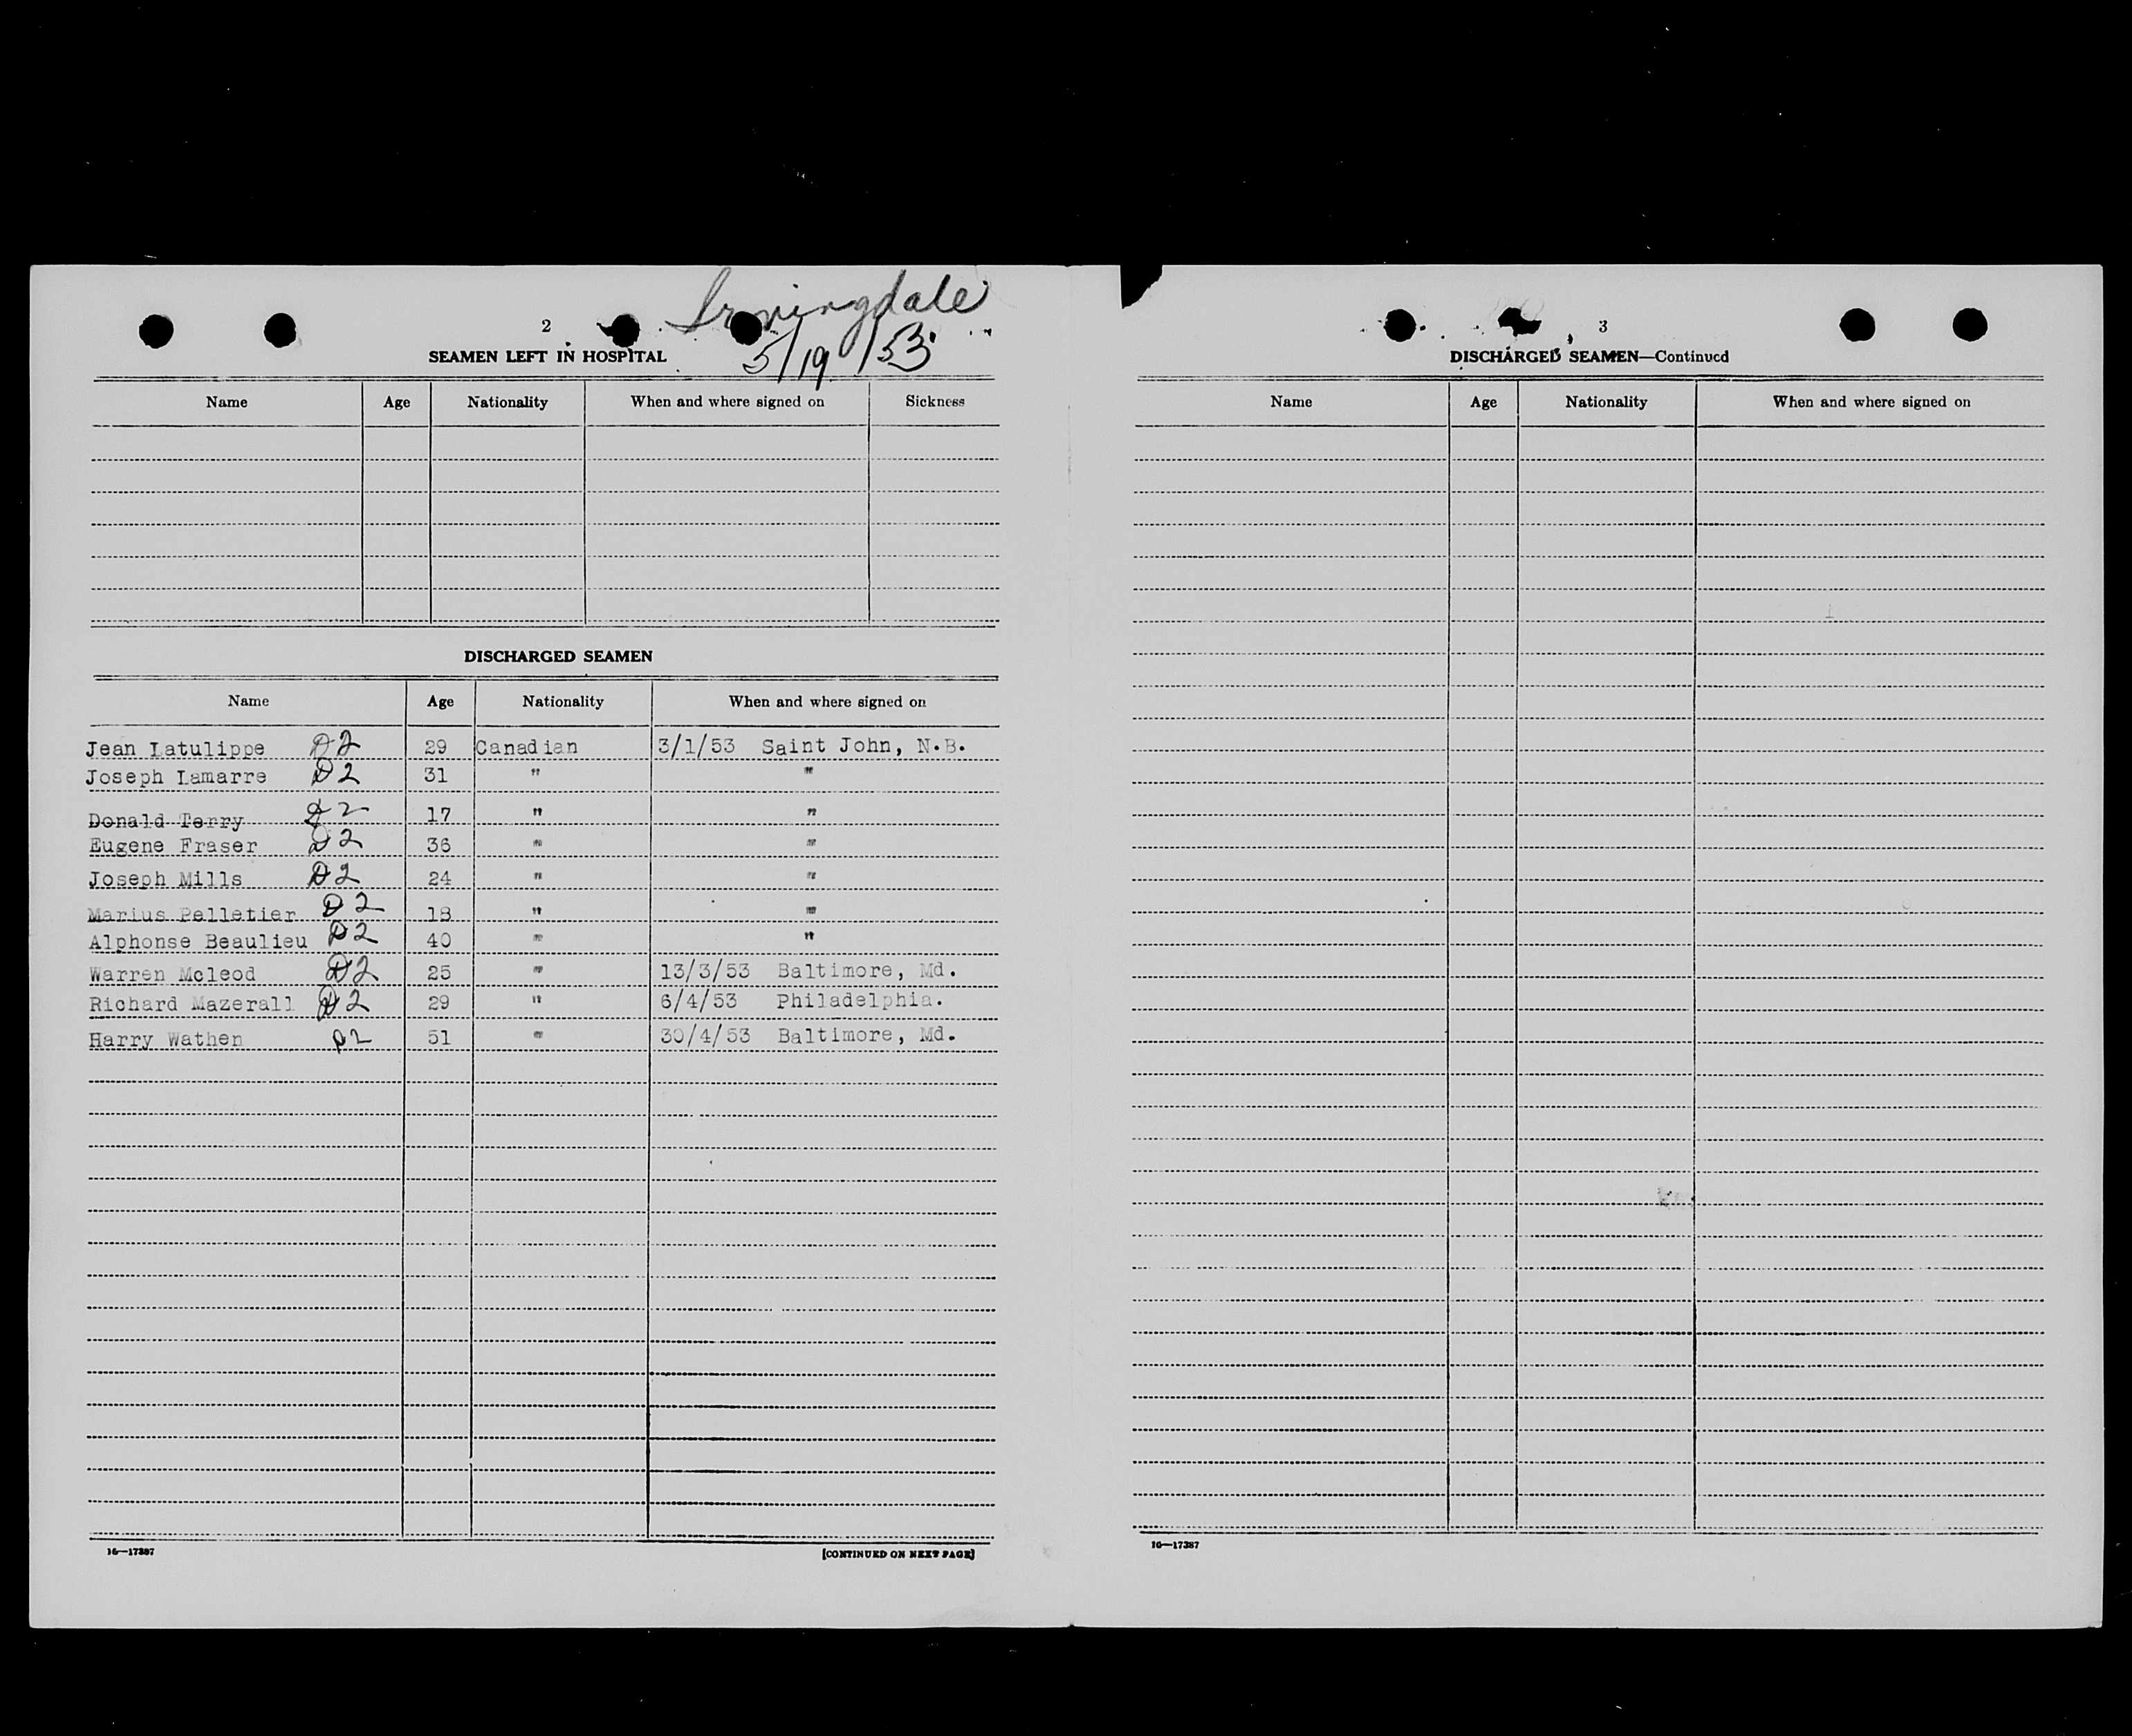 Irvingdale
2
5/19/53
SEAMEN LEFT IN HOSPITAL
Name Age Nationality When and where signed on Sickness
DISCHARGED SEAMEN
Name Age Nationality When and where signed on
Jean Latulippe D2 29 Canadian 3/1/53 Saint John, N.B.
Joseph Lamarre D2 31 " "
Donald Terry D2 17 " "
Eugene Fraser D2 36 " "
Joseph Mills D2 24 " "
Marius Pelletier D2 18 " "
Alphonse Beaulieu D2 40 " "
Warren Mcleod D2 25 " 13/3/53 Baltimore, Md.
Richard Mazerall D2 29 " 6/4/53 Philadelphia.
Harry Wathen D2 51 " 30/4/53 Baltimore, Md.
16—17387
[CONTINUED ON NEXT PAGE]
3
DISCHARGED SEAMEN—Continued
Name Age Nationality When and where signed on
16—17387